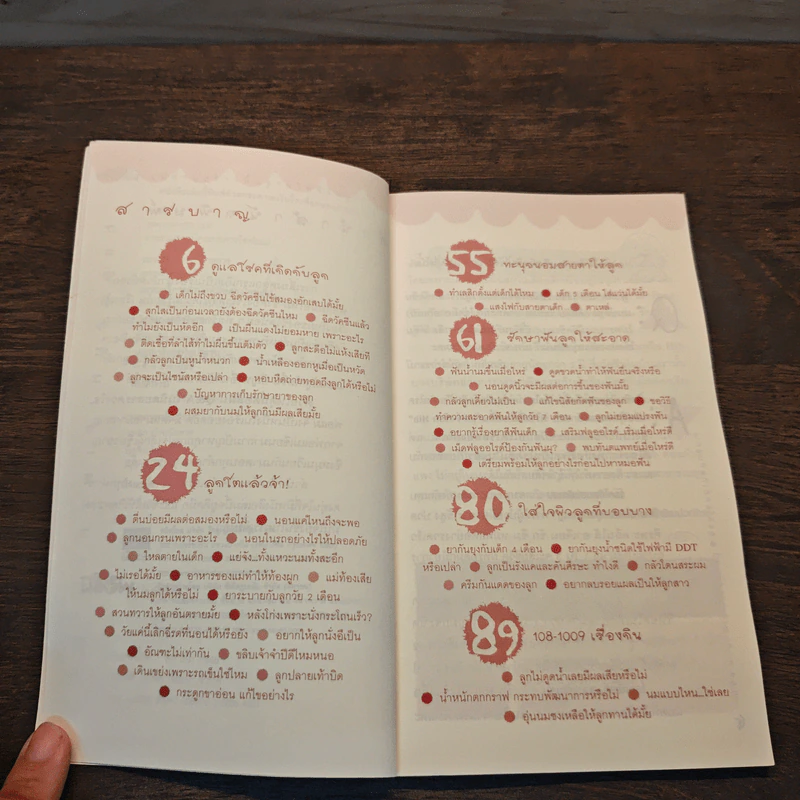 สารบาญ
6 ดูแลโรคที่เกิดกับลูก
เด็กไม่ถึงขวบ ฉีดวัคซีนไข้สมองอักเสบได้มั้ย
สุกใสเป็นก่อนเวลายังต้องฉีดวัคซีนไหม ฉีดวัคซีนแล้ว
ทำไมยังเป็นหัดอีก เป็นผื่นแดงไม่ยอมหาย เพราะอะไร
ติดเชื้อที่ลำไส้ทำไมผื่นขึ้นเต็มตัว ลูกสะดือไม่แห้งเสียที
กลัวลูกเป็นหูน้ำหนวก น้ำเหลืองออกหูเมื่อเป็นหวัด
ลูกจะเป็นไซนัสหรือเปล่า หอบหืดถ่ายทอดถึงลูกได้หรือไม่
ปัญหาการเก็บรักษายาของลูก
ผสมยากับนมให้ลูกกินมีผลเสียมั้ย
24 ลูกโตแล้วจ้า!
ตื่นบ่อยมีผลต่อสมองหรือไม่ นอนแค่ไหนถึงจะพอ
ลูกนอนกรนเพราะอะไร นอนในรถอย่างไรให้ปลอดภัย
ไหลตายในเด็ก แย่จัง...ทั้งแหวะนมทั้งสะอึก
ไม่เรอได้มั้ย อาหารของแม่ทำให้ท้องผูก แม่ท้องเสีย
ให้นมลูกได้หรือไม่ ยาระบายกับลูกวัย 2 เดือน
สวนทวารให้ลูกอันตรายมั้ย หลังโก่งเพราะนั่งกระโถนเร็ว?
วัยแค่นี้เลิกฉี่รดที่นอนได้หรือยัง อยากให้ลูกนั่งฉี่เป็น
อัณฑะไม่เท่ากัน ขลิบเจ้าจำปีดีไหมหนอ
เดินเขย่งเพราะรถเข็นใช่ไหม ลูกปลายเท้าบิด
กระดูกขาอ่อน แก้ไขอย่างไร
55 ทะนุถนอมสายตาให้ลูก
ทำเลสิกตั้งแต่เด็กได้ไหม เด็ก 5 เดือน ใส่แว่นได้มั้ย
แสงไฟกับสายตาเด็ก ตาเหล่
61 รักษาฟันลูกให้สะอาด
ฟันน้ำนมขึ้นเมื่อไหร่ ดูดขวดน้ำทำให้ฟันยื่นจริงหรือ
นอนดูดนิ้วจะมีผลต่อการขึ้นของฟันมั้ย
กลัวลูกเคี้ยวไม่เป็น แก้ไขนิสัยกัดฟันของลูก ขอวิธี
ทำความสะอาดฟันให้ลูกวัย 7 เดือน ลูกไม่ยอมแปรงฟัน
อยากรู้เรื่องยาสีฟันเด็ก เสริมฟลูออไรด์...เริ่มเมื่อไหร่ดี
เม็ดฟลูออไรด์ป้องกันฟันผุ? พบทันตแพทย์เมื่อไหร่ดี
เตรียมพร้อมให้ลูกอย่างไรก่อนไปหาหมอฟัน
80 ใส่ใจผิวลูกที่บอบบาง
ยากันยุงกับเด็ก 4 เดือน ยากันยุงน้ำชนิดใช้ไฟฟ้ามี DDT
หรือเปล่า ลูกเป็นรังแคและคันศีรษะ ทำไงดี กลัวโดนระผม
ครีมกันแดดของลูก อยากลบรอยแผลเป็นให้ลูกสาว
89 108-1009 เรื่องกิน
ลูกไม่ดูดน้ำเลยมีผลเสียหรือไม่
น้ำหนักตกกราฟ กระทบพัฒนาการหรือไม่ นมแบบไหน...ใช่เลย
อุ่นนมชงเหลือให้ลูกทานได้มั้ย